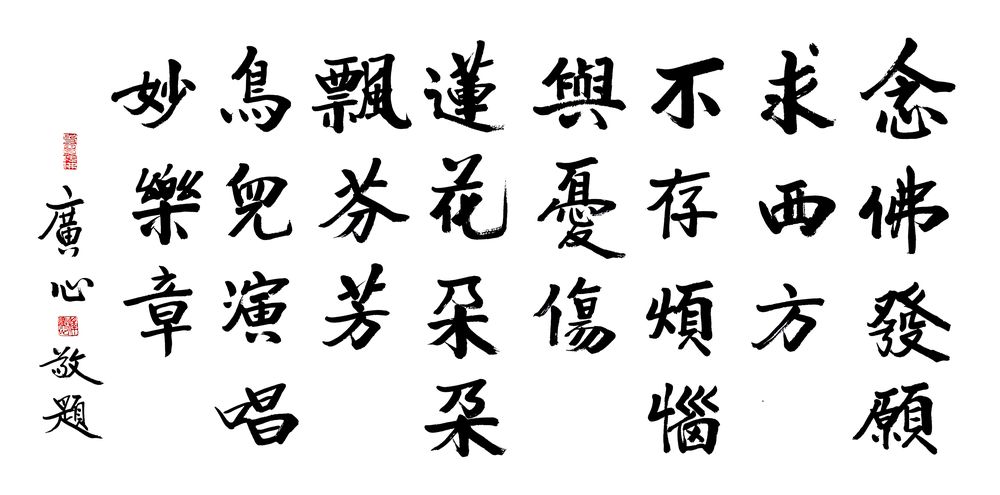 念佛發願
求西方
不存煩惱
與憂傷
蓮花朵朵
飄芬芳
鳥兒演唱
妙樂章
廣心敬題